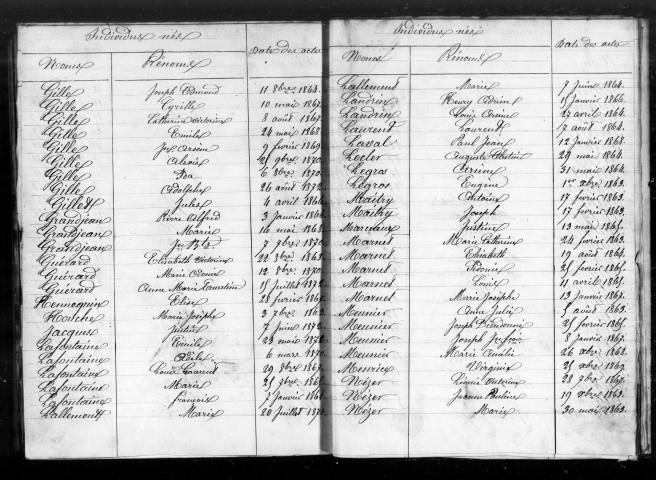 Individus nés
Noms Prénoms Date des actes
Gille Joseph Edmond 11 8bre 1864
Gille Cyrille 10 mai 1867
Gille Catherine Victoire 8 août 1867
Gille Emile 24 mai 1868
Gille Jh Arsène 9 février 1869
Gille 1870
Gille 6 8bre 1870
Gille Adolphe 26 août 1872
Gillet Jules 4 avril 1866
Grandjean Pierre Alfred 3 Janvier 1866
Grandjean Marie 16 mai 1868
Grandjean 7 9bre 1870
Guérard Elisabeth Victoire 22 8bre 1863
Guérard Marie 12 8bre 1870
Guérard Anne Marie 15 Juillet 1872
Hennequin Elise 28 février 1867
Houche Marie Josephe 3 7bre
Jacques Justine 7 Juin 1872
Lafontaine Emile 23 mai 1872
Lafontaine Adèle 6 mars 1870
Lafontaine Louis Laurent 29 8bre 1867
Lafontaine Marie 25 9bre 1865
Lafontaine François 7 Janvier
Lallement Marie 20 Juillet
Individus nés
Noms Prénoms Date des actes
Lallement Marie 7 Juin 1864
Landrin Henry Adrien 15 Janvier 1866
Landrin Louis Arsène 27 avril 1864
Laurent Laurent août 1864
Laval Paul Jean 12 Janvier 1868
Lecler Auguste 29 mai 1864
Legros 31 mai 1864
Legros Eugène 1er xbre 1863
Maitry Antoine 17 février 1863
Maitry Joseph 17 février 1863
Justine 13 mai 1865
Marnet Marie Catherine 24 février 1863
Marnet Elisabeth 19 août 1864
Marnet 25 février 1865
Marnet Louis 11 avril 1865
Marnet Marie Josephe 13 Janvier 1867
Meunier Anne Julie 5 août 1863
Meunier Joseph 25 février 1865
Meunier Joseph 8 Janvier 1867
Meunier Marie Amélie 26 xbre 1868
Meurice Virginie 25 xbre 1869
Mézer 28 7bre 1867
Mézer Jeanne Pauline 19 xbre 1863
Mézer Marie 30 mai 1863